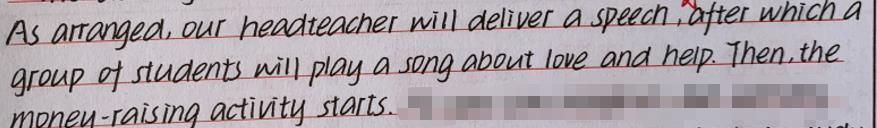 As arranged, our headteacher will deliver a speech, after which a
group of students will play a song about love and help. Then, the
money-raising activity starts.